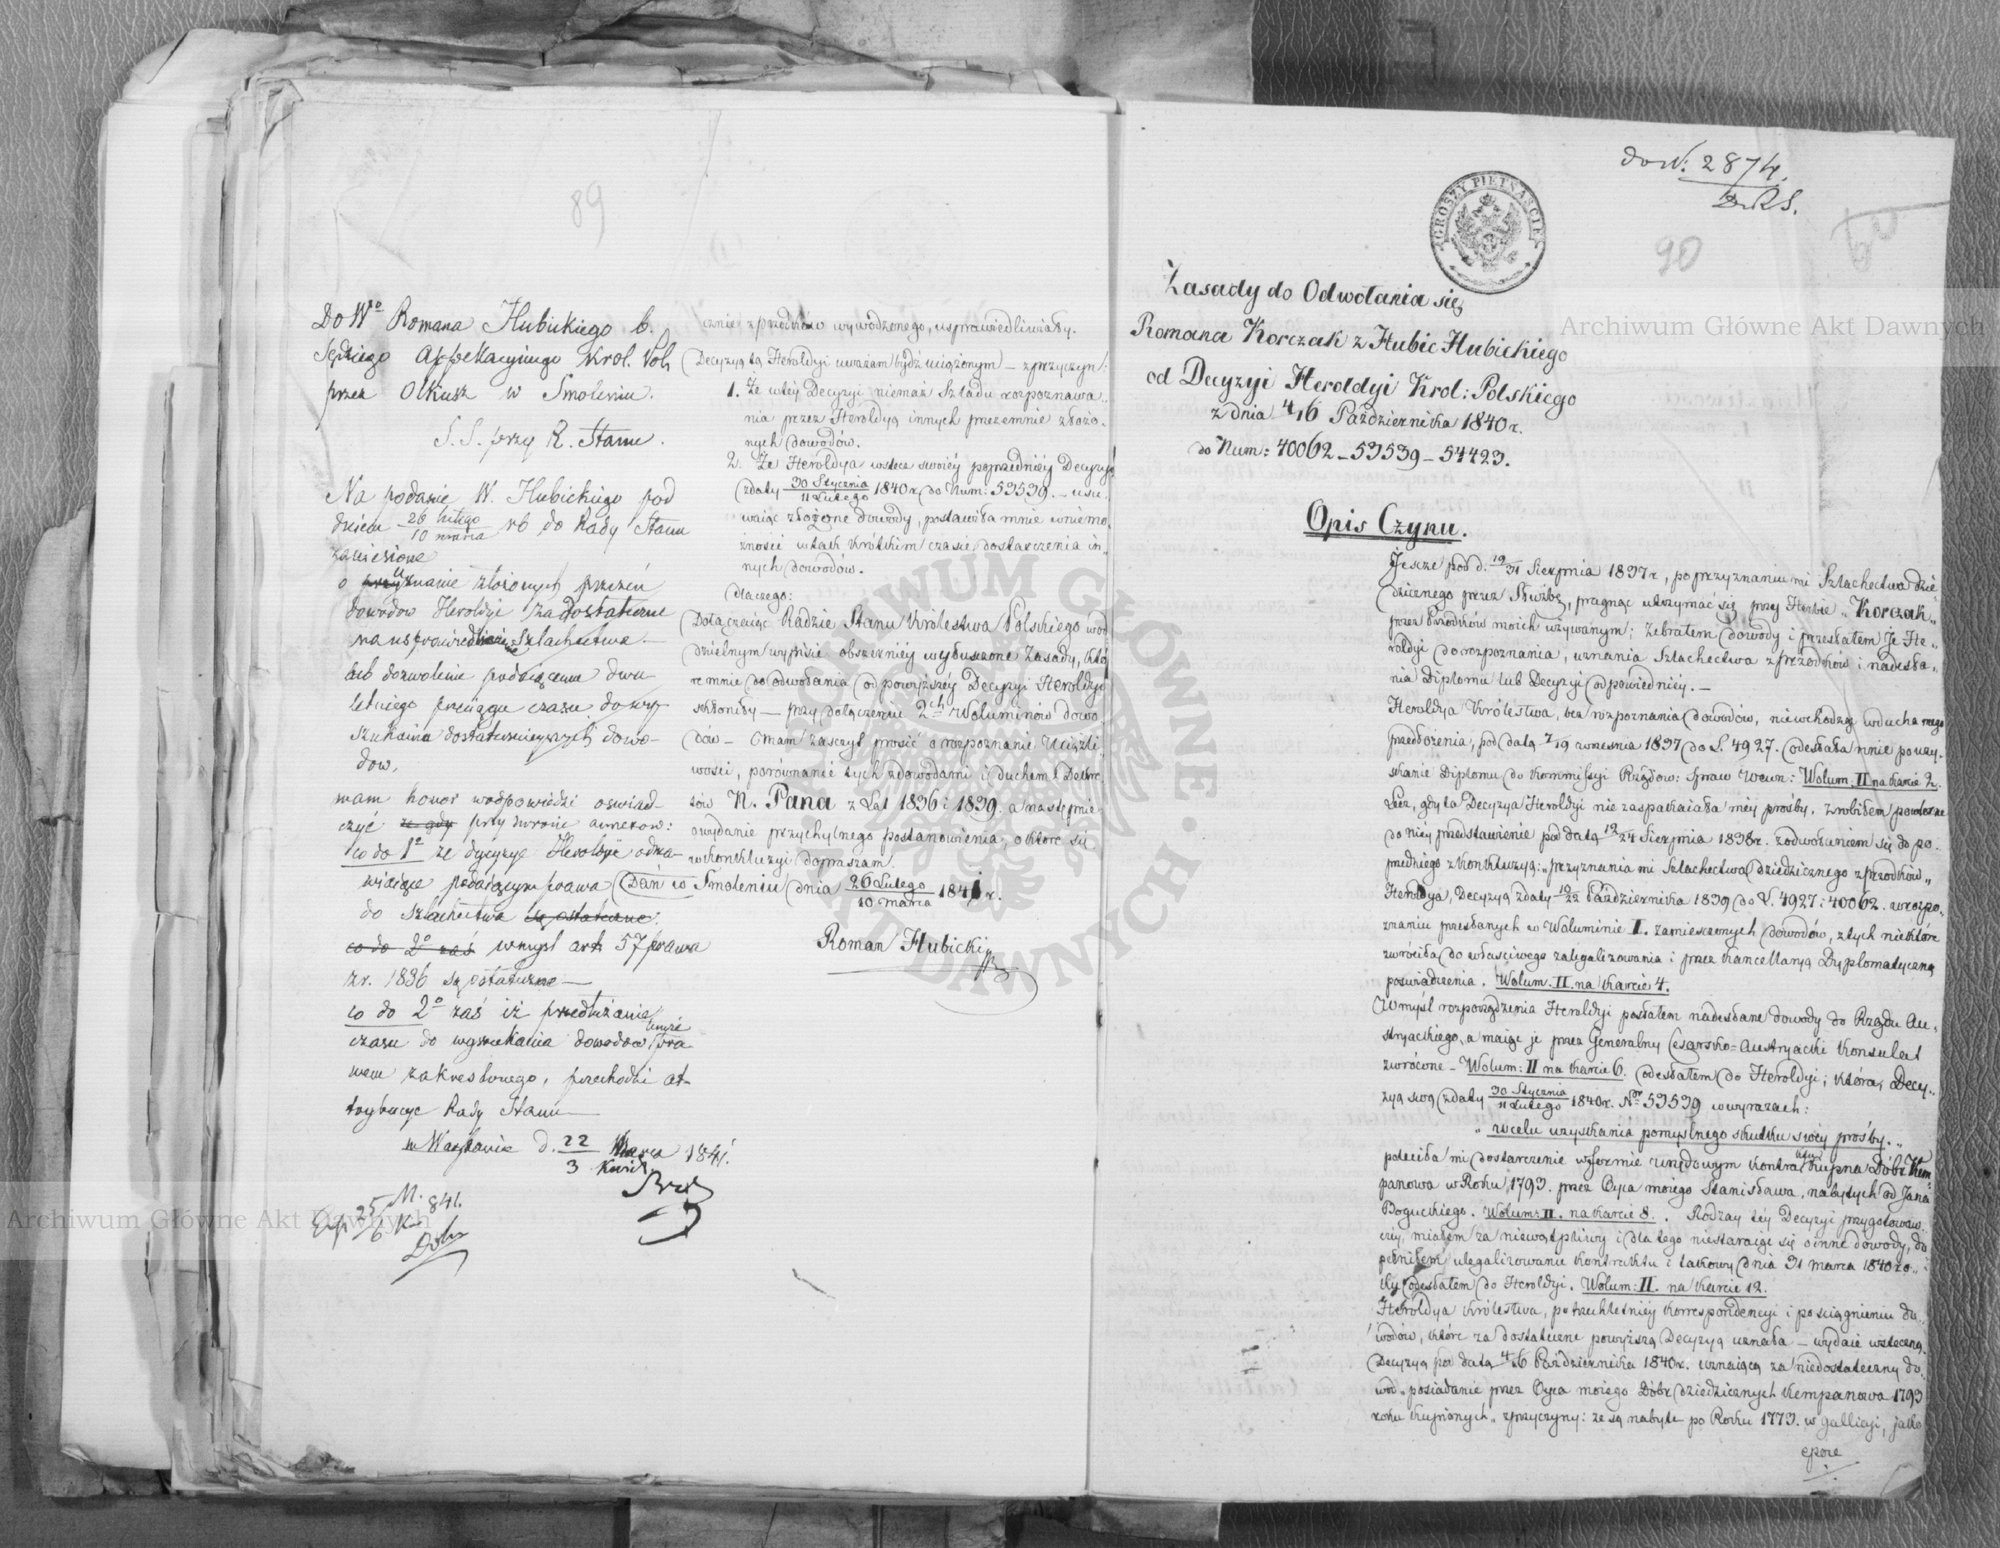 89
Do Wgo Romana Hubickiego b.
Sędziego Appelacyjnego Król. Pol.
przez Olkusz w Smoleniu.
S. S. przy R. Stanu.
Na podanie W. Hubickiego pod
dniem 26 lutego / 10 marca rb do Rady Stanu
zaniesione
o uznanie złożonych przezeń
dowodów Heroldyi za dostateczne
na usprawiedliwienie Szlachectwa
lub dozwolenie podającemu dwu-
letniego przeciągu czasu do wy-
szukania dostateczniejszych dowo-
dów,
mam honor w odpowiedzi oświad-
czyć ze gdy przy zwrocie annexów:
co do 1o że decyzye Heroldyi odma-
wiające podającym prawa
do szlachectwa są ostateczne.
co do 2o zaś w myśl art 57 prawa
z r. 1836 są ostateczne
co do 2o zaś iż przedłużanie
czasu do wyszukania dowodów pra-
wem zakreślonego, przechodzi at-
trybucye Rady Stanu
w Warszawie d. 22 Marca / 3 Kwiet. 1841.
Exp 25 M. / 6 K. 841.
cznie z przodków wywodzonego, usprawiedliwiały.
Decyzyą tą Heroldyi uważam bydź uciążonym – z przyczyn:
1. Że w tej Decyzyi niemasz śladu rozpoznawa-
nia przez Heroldyą innych przezemnie złożo-
nych dowodów.
2. Że Heroldya wstecz swoiéy poprzedniéy Decyzyi
z daty 30 Stycznia / 11 Lutego 1840 r, do Num: 53539. – usu-
waiąc złożone dowody, postawiła mnie w niemo-
żności w tak krótkim czasie dostarczenia in-
nych dowodów.
dlaczego:
Dołączaiąc Radzie Stanu Królestwa Polskiego w od-
dzielnym wypisie obszerniéy wyłuszczone Zasady, któ-
re mnie do odwołania od powyższéy Decyzyi Heroldyi
skłoniły – przy dołączeniu 2ch Woluminów dowo-
dów – mam zaszczyt prosić o rozpoznanie uciążli-
wości, porównanie tych z dowodami i duchem Dekre-
tów N. Pana z Lat 1836 i 1839. a następnie
o wydanie przychylnego postanowienia, o które się
w konkluzyi dopraszam.
Dań w Smoleniu dnia 26 Lutego / 10 Marca 1841 r.
Roman Hubicki
do N: 2874.
RS.
90
GROSZY PIĘTNAŚCIE
Zasady do Odwołania się
Romana Korczak z Hubic Hubickiego
od Decyzyi Heroldyi Krol: Polskiego
z dnia 4/16 Października 1840 r.
do Num: 40062 – 53539 – 54423.
Opis Czynu.
Jescze pod d. 19/31 Sierpnia 1837 r, po przyznaniu mi Szlachectwa dzie-
dzicznego przez Służbę, pragnąc utrzymać się przy Herbie „Korczak„
przez Przodków moich używanym; zebrałem dowody i przesłałem Je He-
roldyi do rozpoznania, uznania Szlachectwa z przodków i nadesła-
nia Diplomu lub Decyzyi odpowiedniéy. –
Heroldya Królestwa, bez rozpoznania dowodów, niewchodząc w ducha mego
przedłożenia, pod datą 7/19 września 1837 do L. 4927. odesłała mnie po uzy-
skanie Diplomu do Kommissyi Rządow: Spraw Wewn: Wolum. II na karcie 2.
Lecz, gdy ta Decyzya Heroldyi nie zaspakaiała méy prośby, zrobiłem powtórne
do niéy przedstawienie pod datą 12/24 Sierpnia 1838r. z odwołaniem się do po-
przedniego z konkluzyą: „przyznania mi Szlachectwa dziedzicznego z przodków„
Heroldya, Decyzyą z daty 10/22 Października 1839 do L. 4927: 40062. w rozpo-
znaniu przesłanych w Woluminie I. zamieszczonych dowodów, z tych niektóre
zwróciła do właściwego zalegalizowania i przez Kancellaryą Dyplomatyczną
poświadczenia. Wolum. II. na karcie 4.
W myśl rozporządzenia Heroldyi posłałem nadesłane dowody do Rządu Au-
stryackiego, a maiąc je przez Generalny Cesarsko-Austryacki Konsulat
zwrócone – Wolum: II na karcie 6. odesłałem do Heroldyi; która, Decy-
zyą swą z daty 30 Stycznia / 11 Lutego 1840 r. Nr 53539 w wyrazach:
„w celu uzyskania pomyślnego skutku swéy prośby.„
poleciła mi dostarczenie w formie urzędowym kontraktu kupna Dóbr Kem-
panowa w Roku 1793. przez Oyca mojego Stanisława, nabytych od Jana
Boguckiego. Wolum: II. na karcie 8. Rodzay téy Decyzyi przygotowaw-
czéy, miałem za niewątpliwy i dla tego niestaraiąc się o inne dowody, do-
pełniłem ulegalizowanie kontraktu i takowy dnia 31 marca 1840 ro-
ku odesłałem do Heroldyi. Wolum: II. na karcie 12.
Heroldya Królestwa, po trzechletniéy korrespondencyi i po ściągnieniu do-
wodów, które za dostateczne powyższą Decyzyą uznała – wydaie wsteczną
Decyzyą pod datą 4/16 Października 1840 r. uznaiącą za niedostateczny do-
wód „posiadanie przez Oyca moiego Dóbr dziedzicznych Kempanowa 1793
roku kupionych„ z przyczyny: że są nabyte po Roku 1773. w Gallicyi, jako
epoce
Archiwum Główne Akt Dawnych
Archiwum Główne Akt Dawnych
ARCHIWUM GŁÓWNE AKT DAWNYCH